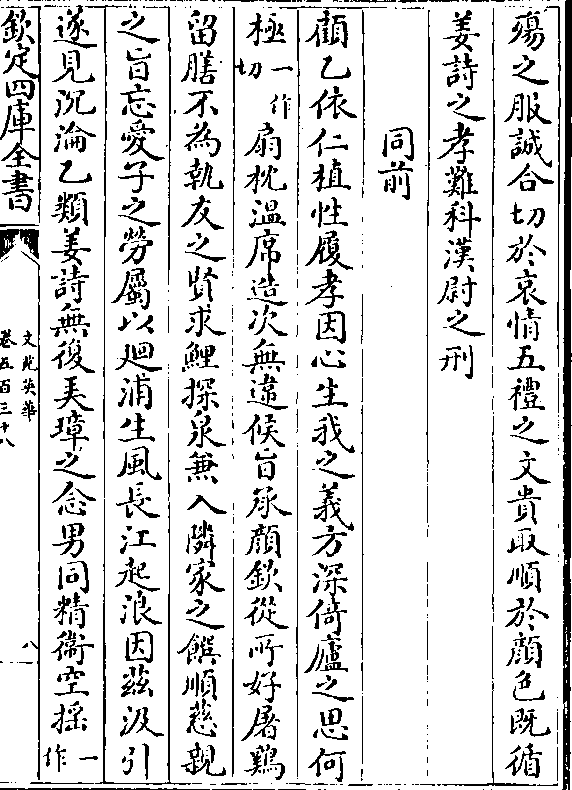 殤之服誠合切於哀情五禮之文貴取順於顔色既循
姜詩之孝難科漢尉之刑
同前
顧乙依仁植性履孝因心生我之義方深倚廬之思何
極一作切扇枕溫席造次無違候旨承顔欽從所好屠鷄
留膳不為執友之賢求鯉探泉無入隣家之饌順慈親
之旨忘愛子之勞屬以廻浦生風長江起浪因茲汲引
遂見沉淪乙類姜詩無復弄璋之念男同精衞空揺一作
欽定四庫全書
文苑英華
卷五百三十八
八